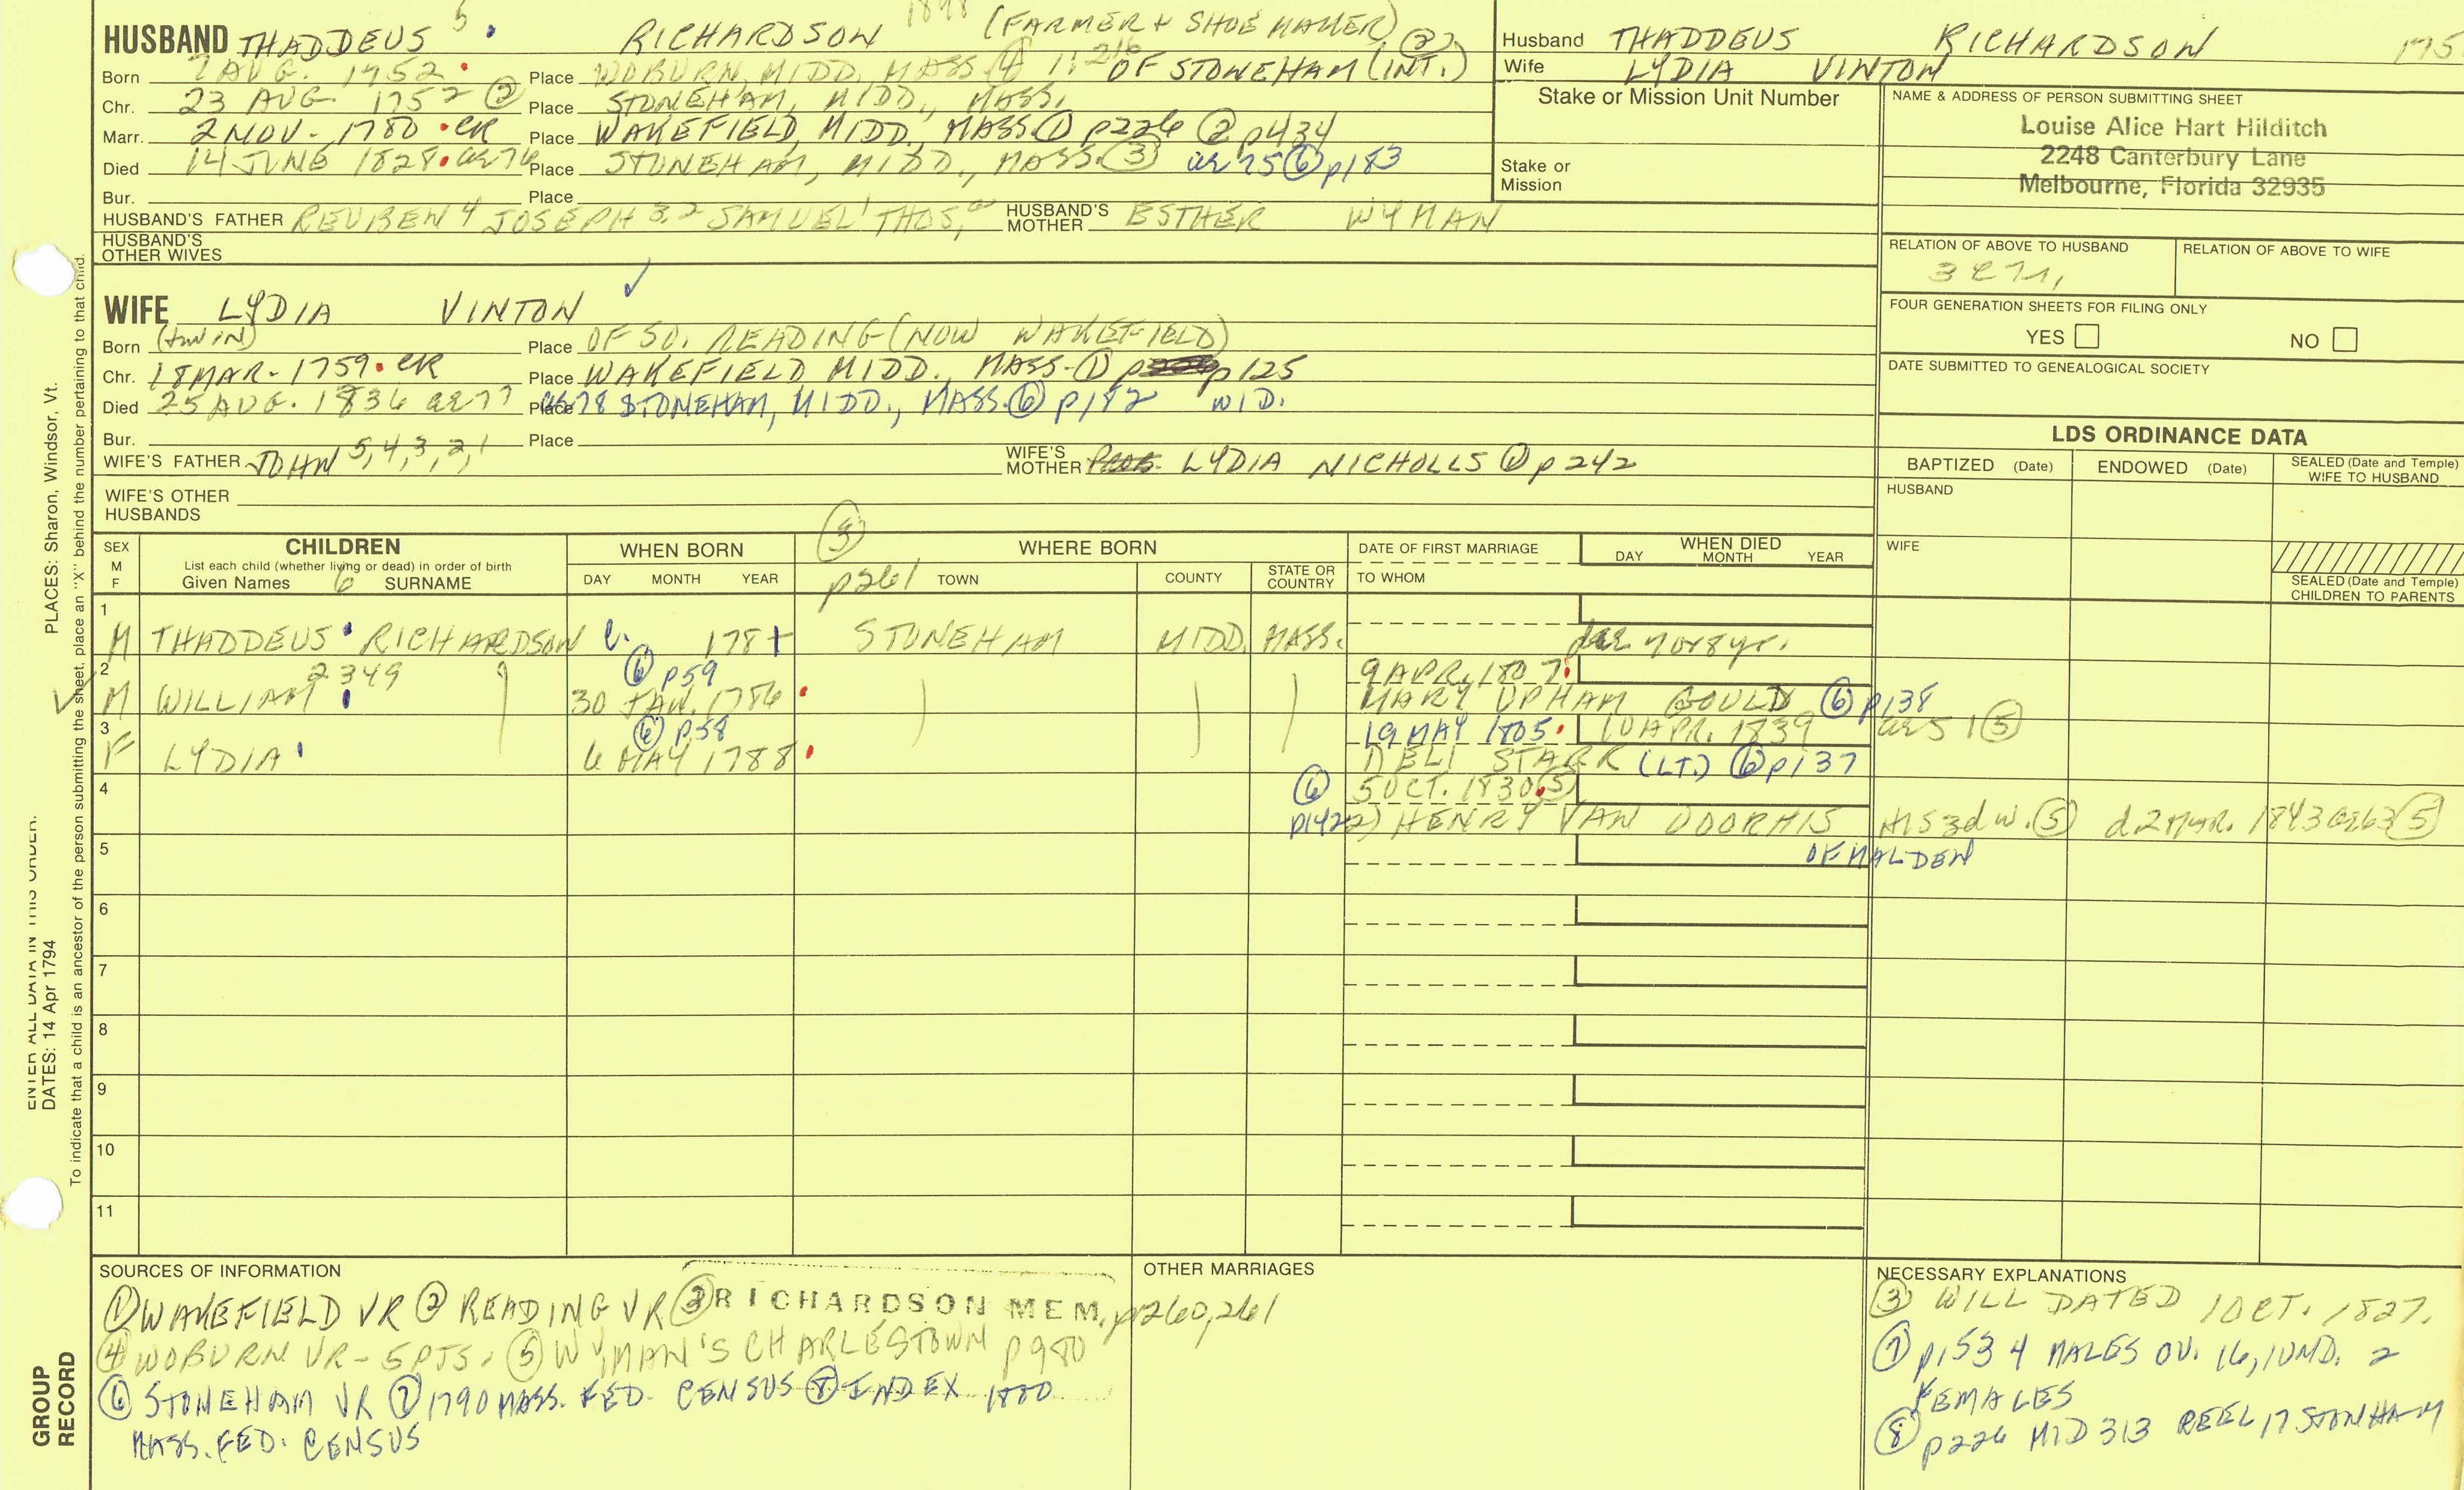 HUSBAND THADDEUS 5 RICHARDSON (FARMER + SHOE MAKER) (3)
Born 7 AUG. 1752 Place WOBURN, MIDD., MASS. (4) 1:216 OF STONEHAM (INT.)
Chr. 23 AUG 1752 (2) Place STONEHAM, MIDD., MASS.
Marr. 2 NOV. 1780 CR Place WAKEFIELD, MIDD., MASS. (1) p226 (2) p434
Died 14 JUNE 1828 ae 76 Place STONEHAM, MIDD., MASS. (3) ae 75 (6) p183
Bur. Place
HUSBAND'S FATHER REUBEN 4 JOSEPH 3,2 SAMUEL 1 THOS. HUSBAND'S MOTHER ESTHER WYMAN
HUSBAND'S OTHER WIVES
Husband THADDEUS RICHARDSON 175
Wife LYDIA VINTON
Stake or Mission Unit Number
Stake or Mission
NAME & ADDRESS OF PERSON SUBMITTING SHEET
Louise Alice Hart Hilditch
2248 Canterbury Lane
Melbourne, Florida 32935
RELATION OF ABOVE TO HUSBAND RELATION OF ABOVE TO WIFE
FOUR GENERATION SHEETS FOR FILING ONLY
YES NO
DATE SUBMITTED TO GENEALOGICAL SOCIETY
WIFE LYDIA VINTON
Born (twin) Place OF SO. READING (NOW WAKEFIELD)
Chr. 18 MAR. 1759 CR Place WAKEFIELD MIDD. MASS. (1) p125
Died 25 AUG. 1836 ae 77 Place ae 78 STONEHAM, MIDD., MASS. (6) p182 WID.
Bur. Place
WIFE'S FATHER JOHN 5,4,3,2,1 WIFE'S MOTHER LYDIA NICHOLLS (1) p242
WIFE'S OTHER HUSBANDS
LDS ORDINANCE DATA
BAPTIZED (Date) ENDOWED (Date) SEALED (Date and Temple) WIFE TO HUSBAND
HUSBAND
WIFE
SEALED (Date and Temple) CHILDREN TO PARENTS
SEX M F CHILDREN List each child (whether living or dead) in order of birth Given Names 6 SURNAME
WHEN BORN DAY MONTH YEAR
(3) p261 WHERE BORN TOWN COUNTY STATE OR COUNTRY
DATE OF FIRST MARRIAGE TO WHOM
WHEN DIED DAY MONTH YEAR
1 M THADDEUS RICHARDSON 1781 STONEHAM MIDD. MASS. ae 7 or 8 yr.
2 M WILLIAM 2349 (6) p59 30 JAN. 1786 9 APR. 1807 MARY UPHAM GOULD (6) p138
3 F LYDIA (6) p58 6 MAY 1788 19 MAY 1805 10 APR. 1839 ae 51 (5)
1) ELI STARR (LT.) (6) p137
4 (6) p142 5 OCT. 1830 (5)
2) HENRY VAN VOORHIS HIS 3d w. (5) d. 2 Mar. 1843 ae 63 (5)
5 OF MALDEN
6
7
8
9
10
11
SOURCES OF INFORMATION
(1) WAKEFIELD VR (2) READING VR (3) RICHARDSON MEM. p260, 261
(4) WOBURN VR - 5 PTS. (5) WYMAN'S CHARLESTOWN p980
(6) STONEHAM VR (7) 1790 MASS. FED. CENSUS (8) INDEX 1800
MASS. FED. CENSUS
OTHER MARRIAGES
NECESSARY EXPLANATIONS
(3) WILL DATED 1 OCT. 1827.
(7) p153 4 MALES OV. 16, 1 UND. 2
FEMALES
(8) p226 MID 313 REEL 17 STONHAM
PLACES: Sharon, Windsor, Vt.
ENTER ALL DATA IN THIS ORDER:
DATES: 14 Apr 1794
To indicate that a child is an ancestor of the person submitting the sheet, place an "X" behind the number pertaining to that child.
GROUP RECORD